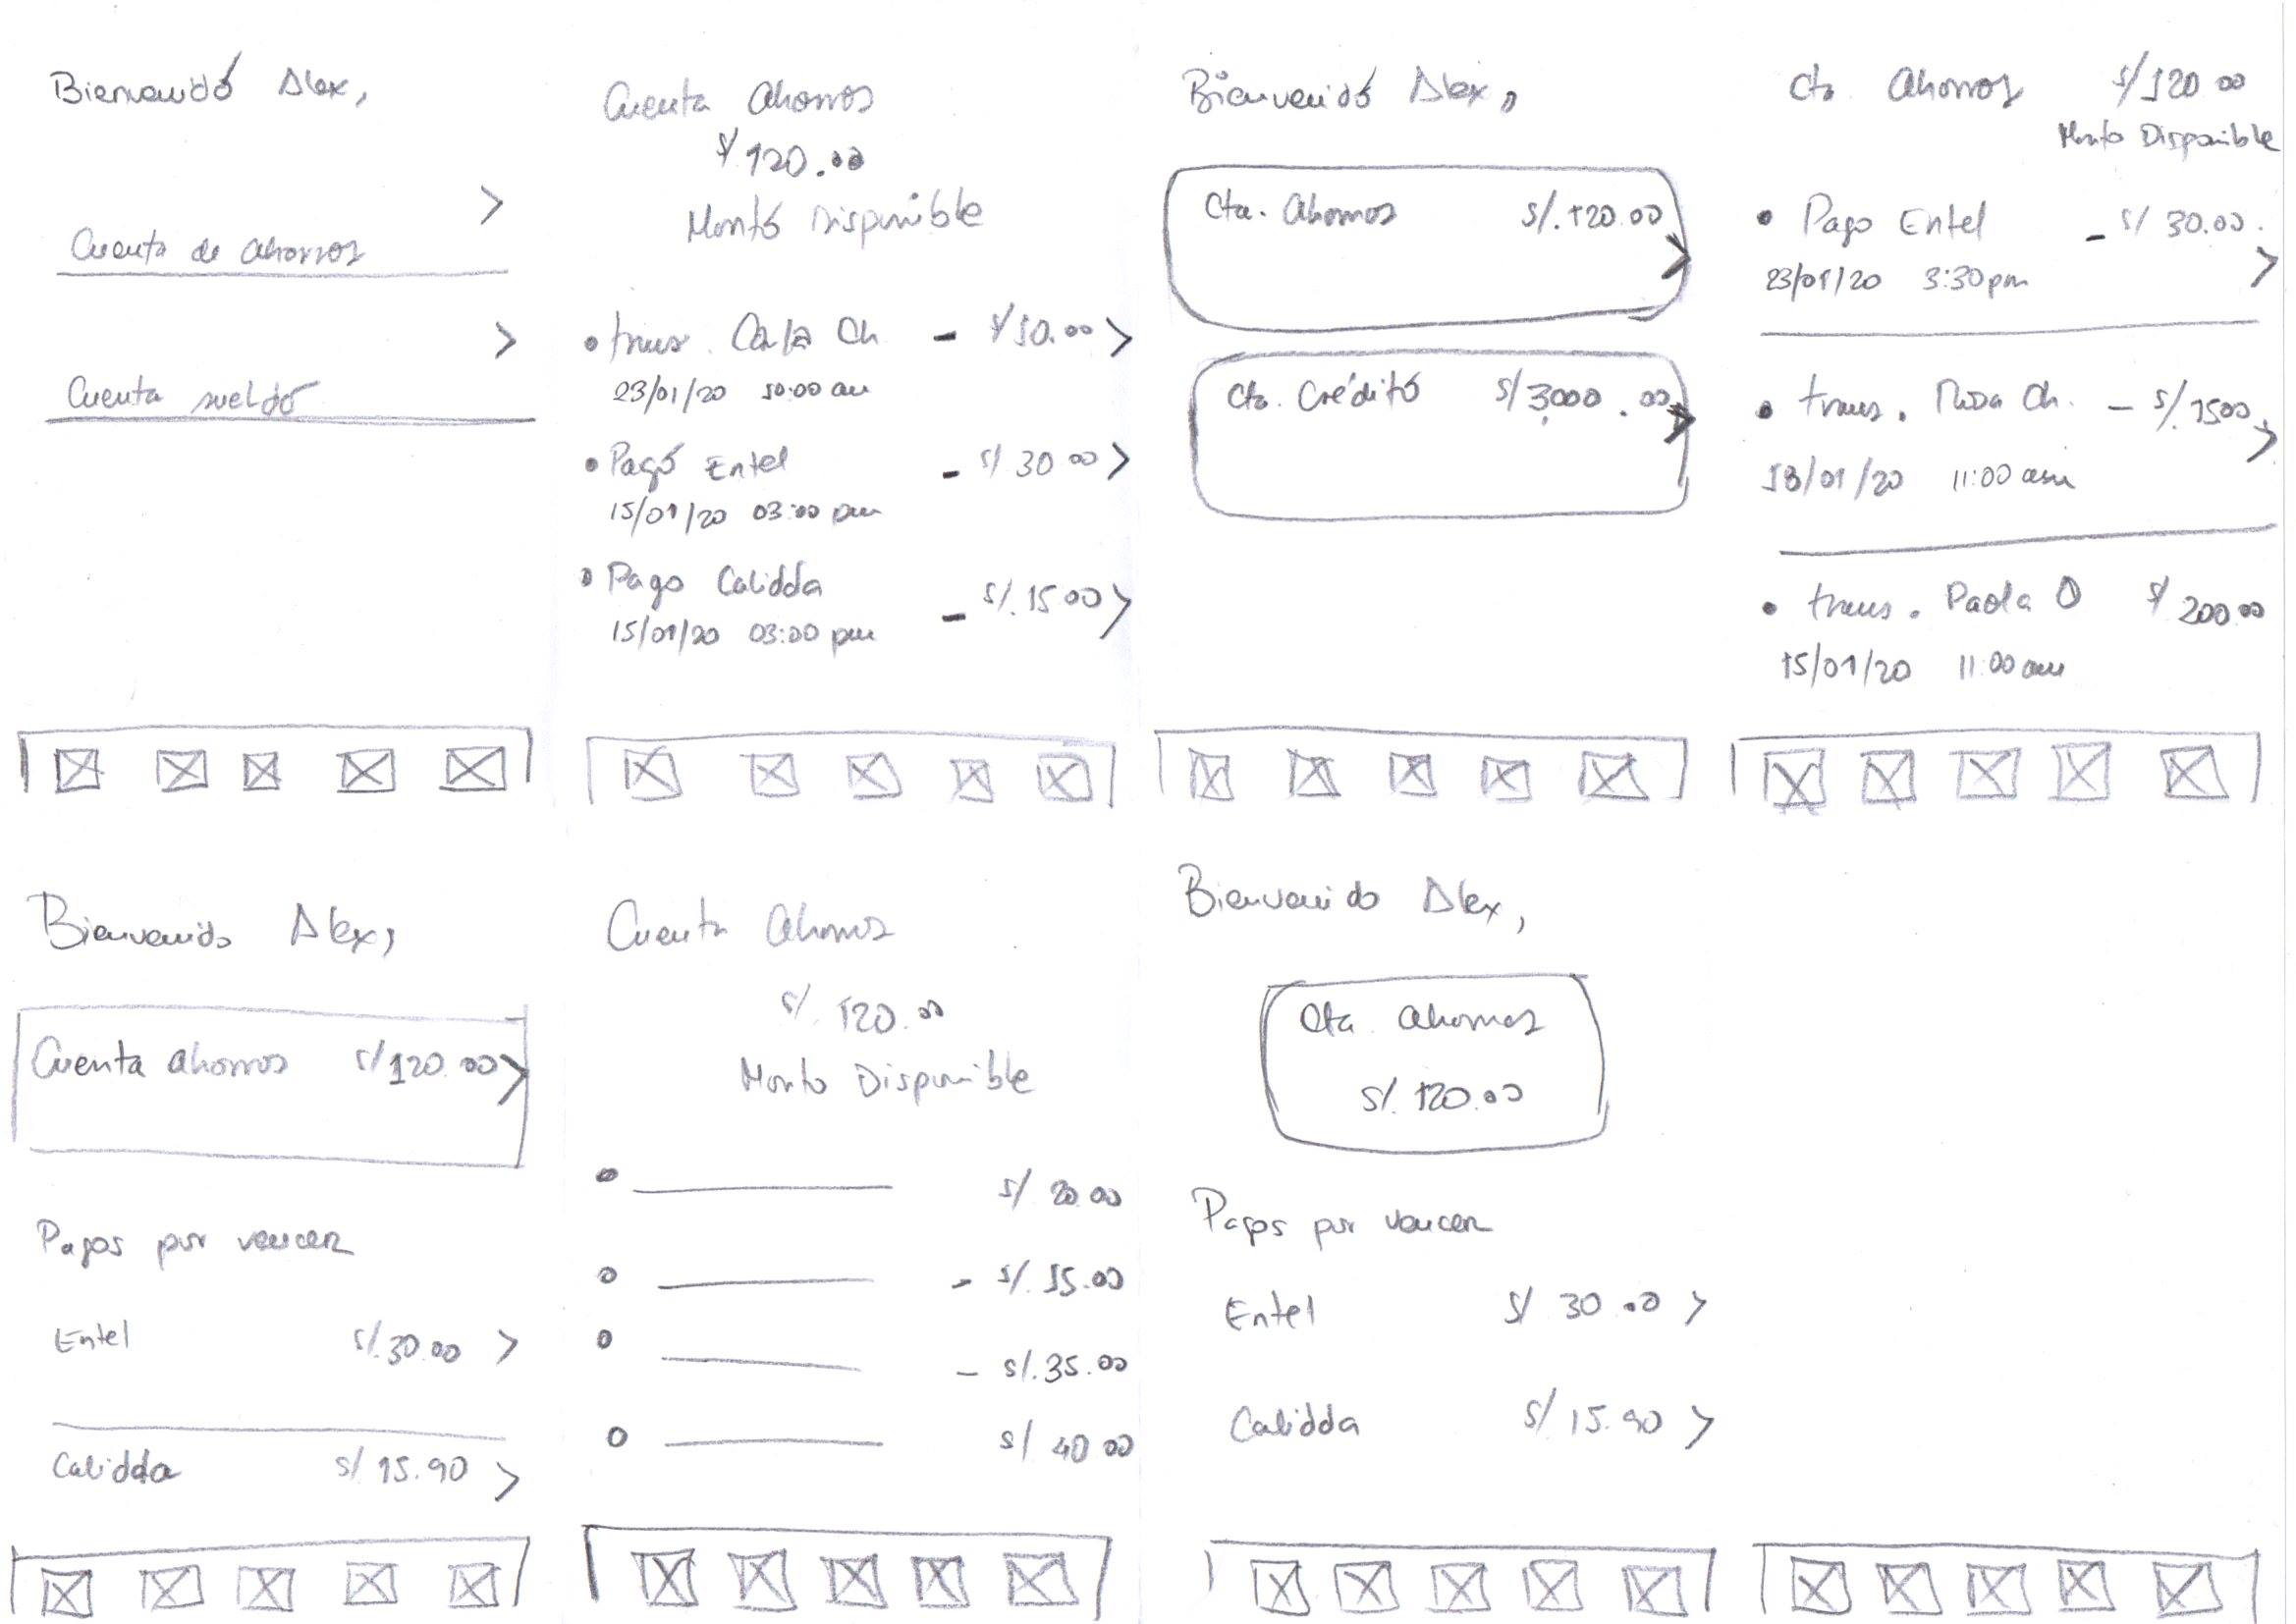 Bienvenido Alex,
Cuenta de ahorros >
Cuenta sueldo >
Cuenta Ahorros
S/120.00
Monto Disponible
• trans. Carla Ch - S/10.00 >
23/01/20 10:00 am
• Pago Entel - S/ 30 00 >
15/01/20 03:00 pm
• Pago Calidda - S/. 15 00 >
15/01/20 03:00 pm
Bienvenido Alex,
Cta. Ahorros S/. 120.00 >
Cta. Crédito S/ 3,000.00 >
Cta Ahorros S/120 00
Monto Disponible
• Pago Entel - S/ 30.00. >
23/01/20 3:30pm
• trans. Rosa Ch. - S/. 1500 >
18/01/20 11:00 am
• trans. Paola O S/ 200.00
15/01/20 11:00 am
Bienvenido Alex,
Cuenta ahorros S/120.00 >
Pagos por vencer
Entel S/.30.00 >
Calidda S/ 15.90 >
Cuenta Ahorros
S/. 120.00
Monto Disponible
S/ 20.00
- S/. 15.00
- S/. 35.00
S/ 40 00
Bienvenido Alex,
Cta. ahorros
S/. 120.00
Pagos por vencer
Entel S/ 30.00 >
Calidda S/ 15.90 >